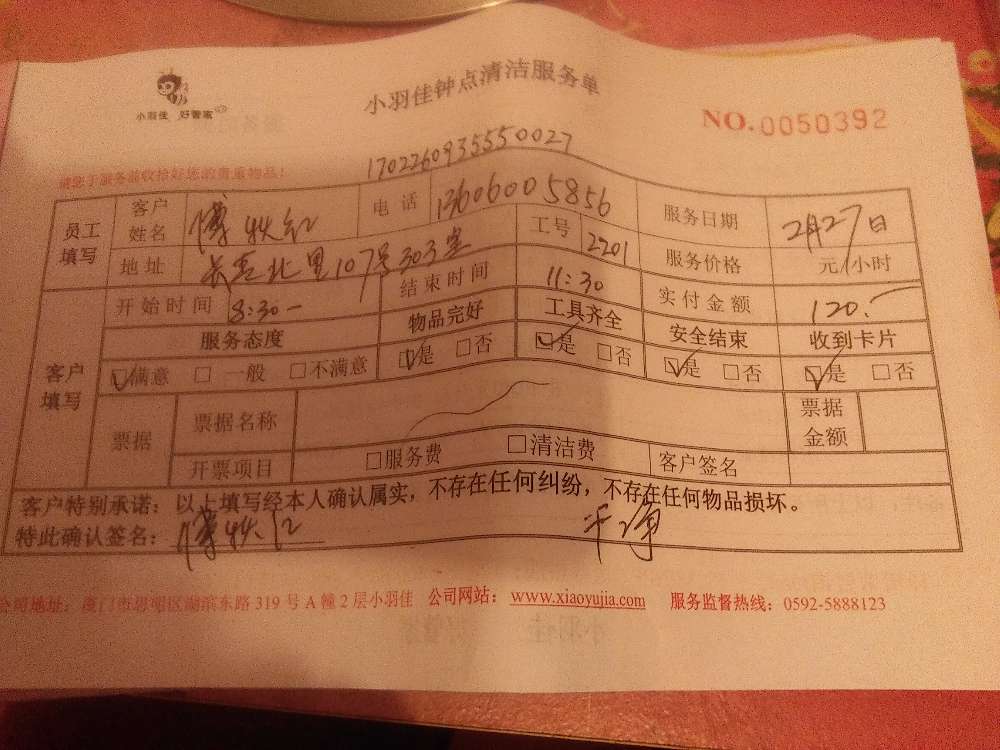 小羽佳 好管家
小羽佳钟点清洁服务单
NO.0050392
1702260935550027
请您于服务前收拾好您的贵重物品!
员工填写
客户姓名 电话 13606005856 服务日期 2月27日
地址 北里107号303室 工号 2201 服务价格 元/小时
开始时间 8:30 结束时间 11:30 实付金额 120.-
客户填写
服务态度 物品完好 工具齐全 安全结束 收到卡片
☑满意 □一般 □不满意 ☑是 □否 ☑是 □否 ☑是 □否 ☑是 □否
票据 票据名称 票据金额
开票项目 □服务费 □清洁费 客户签名
客户特别承诺：以上填写经本人确认属实，不存在任何纠纷，不存在任何物品损坏。
特此确认签名： 干净
公司地址：厦门市思明区湖滨东路319号A幢2层小羽佳 公司网站：www.xiaoyujia.com 服务监督热线：0592-5888123